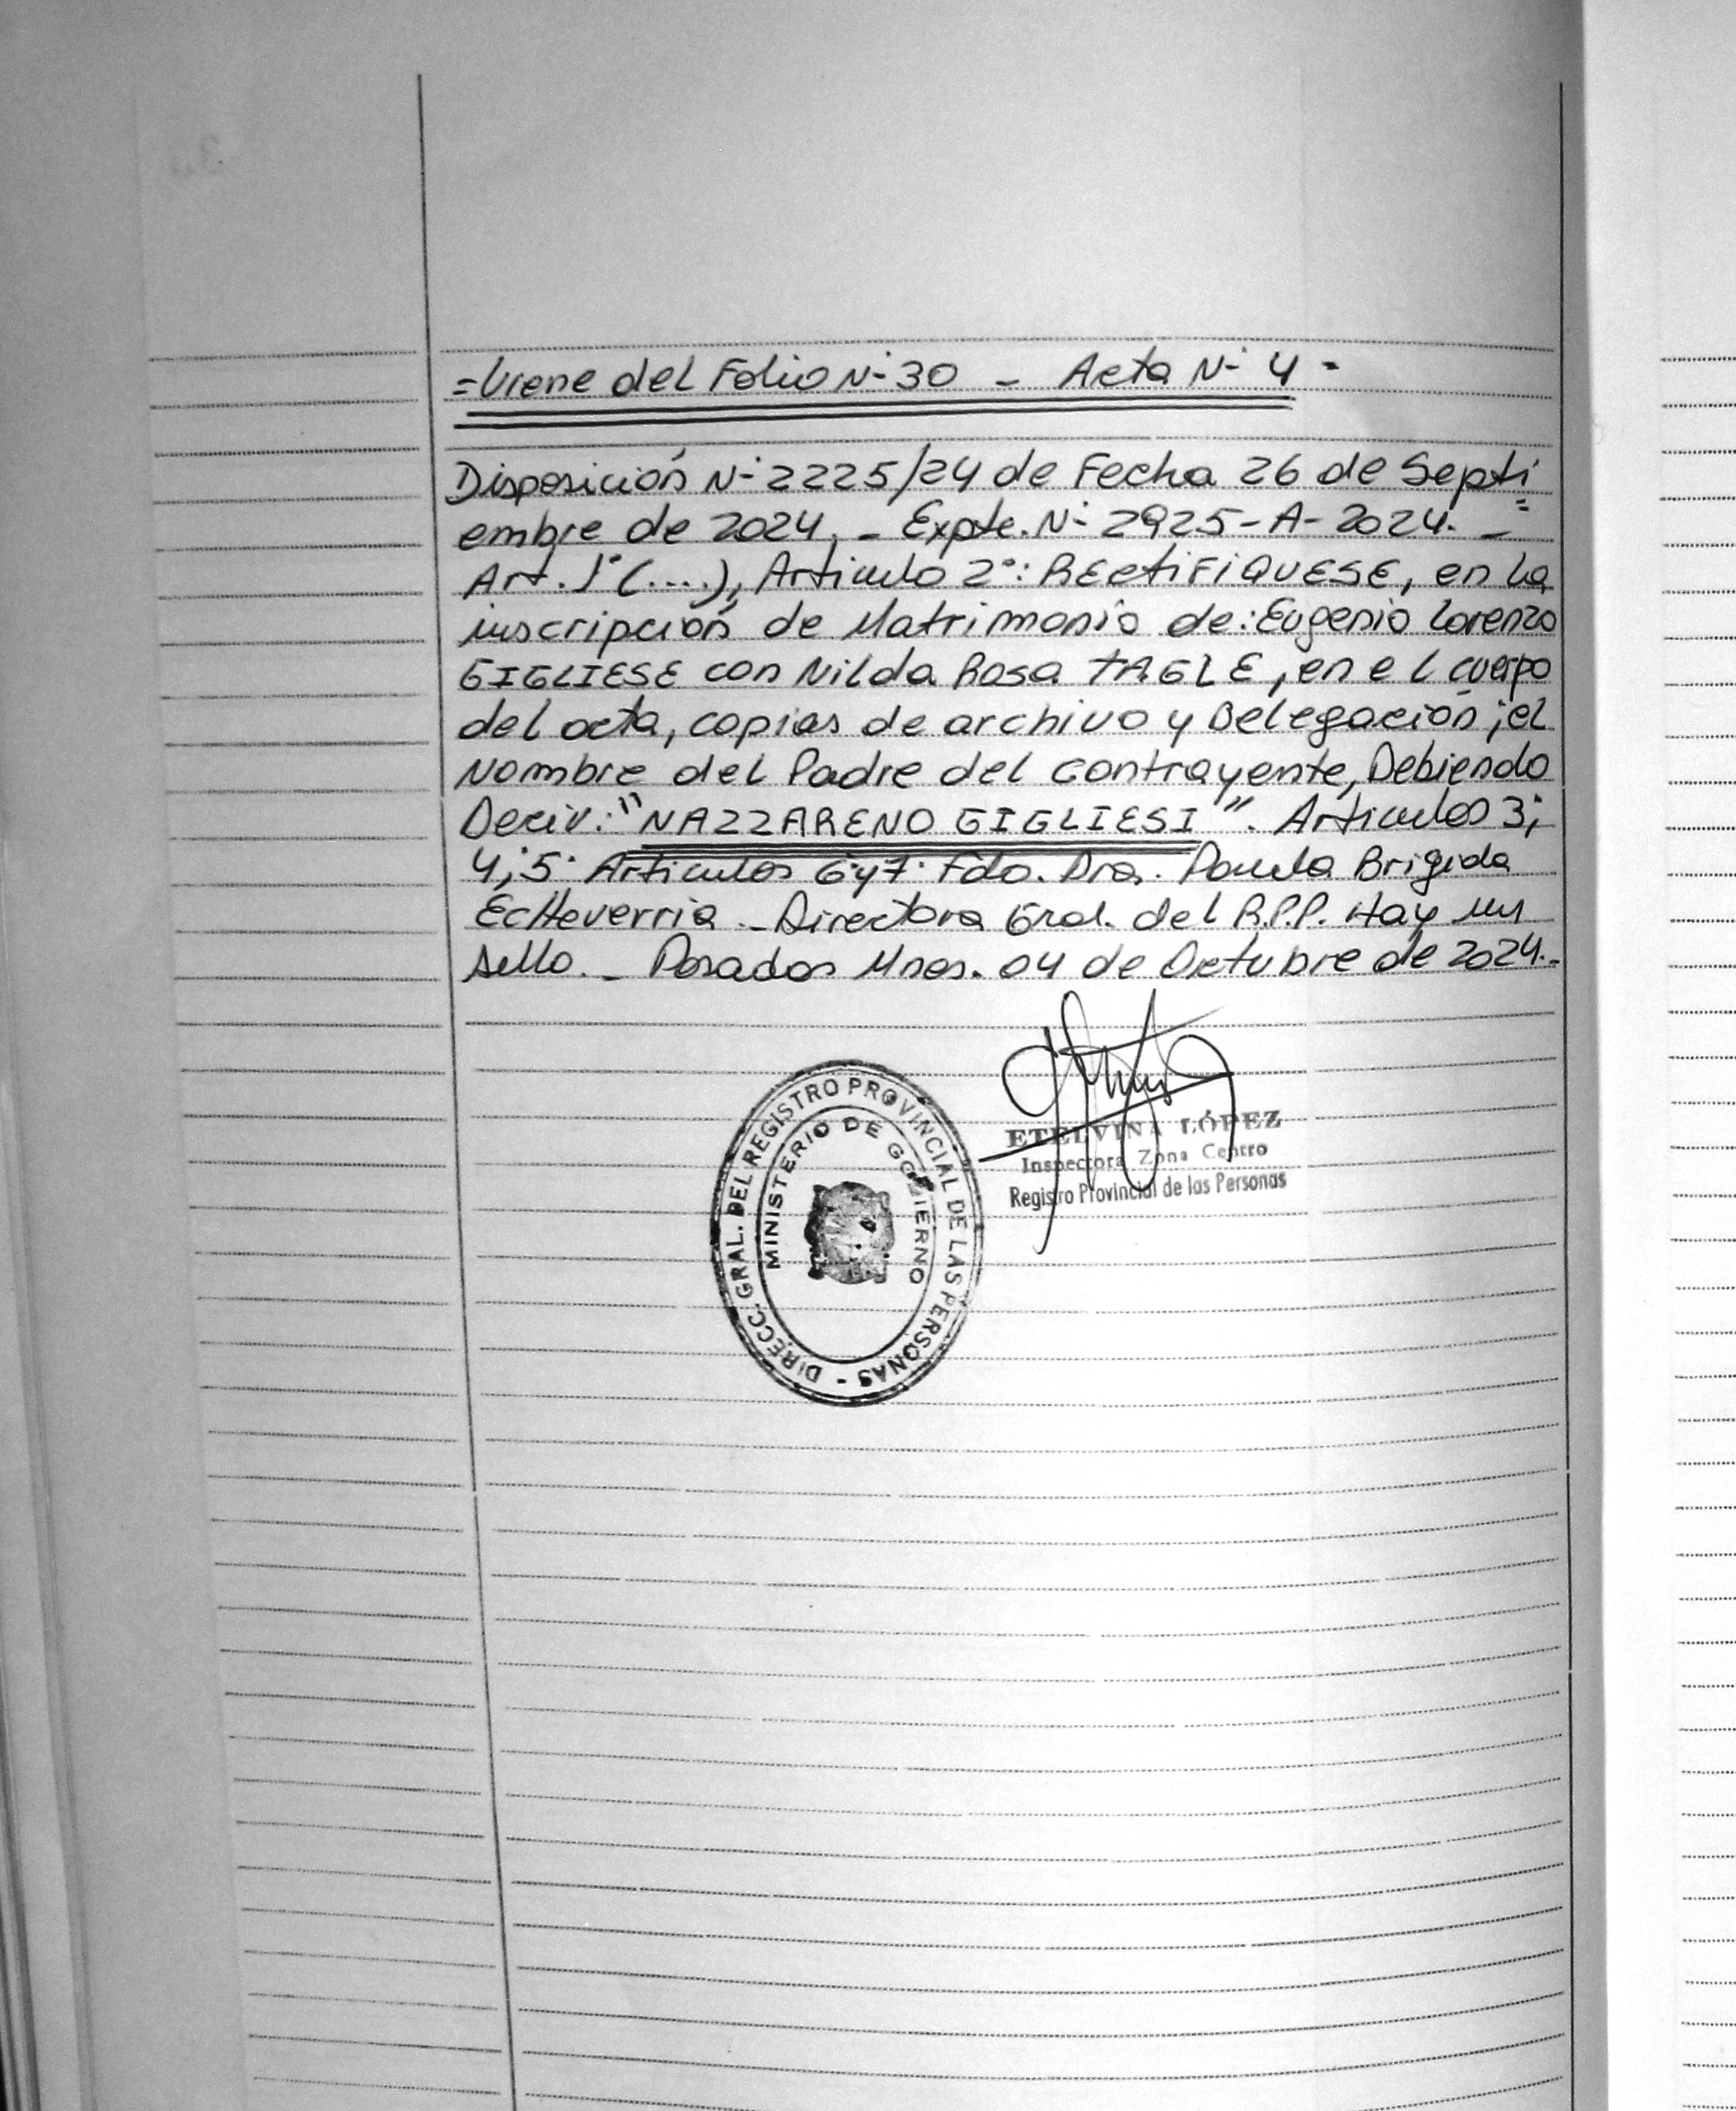 =Viene del Folio N° 30 - Acta N° 4 -
Disposición N° 2225/24 de Fecha 26 de Septi
embre de 2024. - Expte. N° 2925-A-2024. -
Art. 1° (....), Articulo 2°: RECtiFiQUESE, en la
inscripción de Matrimonio de: Eugenio Lorenzo
GIGLIESE con Nilda Rosa TAGLE, en el cuerpo
del acta, copias de archivo y Delegación; el
Nombre del Padre del contrayente, Debiendo
Decir: "NAZZARENO GIGLIESI". Articulos 3;
4; 5° Articulos 6 y 7° Fdo. Dra. Paula Brigida
EcHeverria - Directora Gral. del R.P.P. Hay un
sello. - Posadas Mnes. 04 de Octubre de 2024.-
ETELVINA LÓPEZ
Inspectora Zona Centro
Registro Provincial de las Personas
DIRECC. GRAL. DEL REGISTRO PROVINCIAL DE LAS PERSONAS -
MINISTERIO DE GOBIERNO